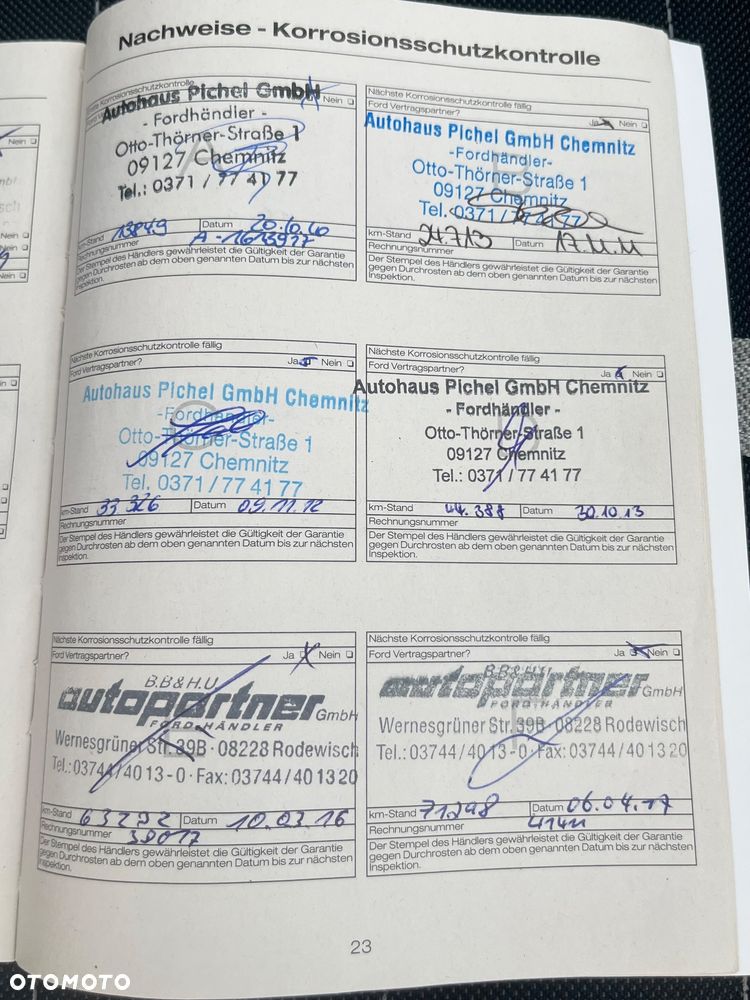 Nachweise - Korrosionsschutzkontrolle
Korrosionsschutzkontrolle
Nein
Autohaus Pichel GmbH
- Fordhändler -
Otto-Thörner-Straße 1
09127 Chemnitz
Tel.: 0371 / 77 41 77
km-Stand 13849 Datum 20.10.10
Rechnungsnummer
Der Stempel des Händlers gewährleistet die Gültigkeit der Garantie
gegen Durchrosten ab dem oben genannten Datum bis zur nächsten
Inspektion.
Nächste Korrosionsschutzkontrolle fällig
Ford Vertragspartner? Ja Nein
Autohaus Pichel GmbH Chemnitz
-Fordhändler-
Otto-Thörner-Straße 1
09127 Chemnitz
Tel. 0371 / 77 41 77
km-Stand 24713 Datum 17.11.11
Rechnungsnummer
Der Stempel des Händlers gewährleistet die Gültigkeit der Garantie
gegen Durchrosten ab dem oben genannten Datum bis zur nächsten
Inspektion.
Nächste Korrosionsschutzkontrolle fällig
Ford Vertragspartner? Ja Nein
Autohaus Pichel GmbH Chemnitz
-Fordhändler-
Otto-Thörner-Straße 1
09127 Chemnitz
Tel. 0371 / 77 41 77
km-Stand 33 326 Datum 09.11.12
Rechnungsnummer
Der Stempel des Händlers gewährleistet die Gültigkeit der Garantie
gegen Durchrosten ab dem oben genannten Datum bis zur nächsten
Inspektion.
Nächste Korrosionsschutzkontrolle fällig
Ford Vertragspartner? Ja Nein
Autohaus Pichel GmbH Chemnitz
- Fordhändler -
Otto-Thörner-Straße 1
09127 Chemnitz
Tel.: 0371 / 77 41 77
km-Stand 44.388 Datum 30.10.13
Rechnungsnummer
Der Stempel des Händlers gewährleistet die Gültigkeit der Garantie
gegen Durchrosten ab dem oben genannten Datum bis zur nächsten
Inspektion.
Nächste Korrosionsschutzkontrolle fällig
Ford Vertragspartner? Ja Nein
B.B & H.U
autopartner GmbH
FORD-HÄNDLER
Wernesgrüner Str. 39B · 08228 Rodewisch
Tel.: 03744/40 13-0 · Fax: 03744/40 13 20
km-Stand 63292 Datum 10.03.16
Rechnungsnummer 39017
Der Stempel des Händlers gewährleistet die Gültigkeit der Garantie
gegen Durchrosten ab dem oben genannten Datum bis zur nächsten
Inspektion.
Nächste Korrosionsschutzkontrolle fällig
Ford Vertragspartner? Ja Nein
B.B & H.U
autopartner GmbH
FORD-HÄNDLER
Wernesgrüner Str. 39B · 08228 Rodewisch
Tel.: 03744/40 13-0 · Fax: 03744/40 13 20
km-Stand 71298 Datum 06.04.17
Rechnungsnummer
Der Stempel des Händlers gewährleistet die Gültigkeit der Garantie
gegen Durchrosten ab dem oben genannten Datum bis zur nächsten
Inspektion.
23
OTOMOTO